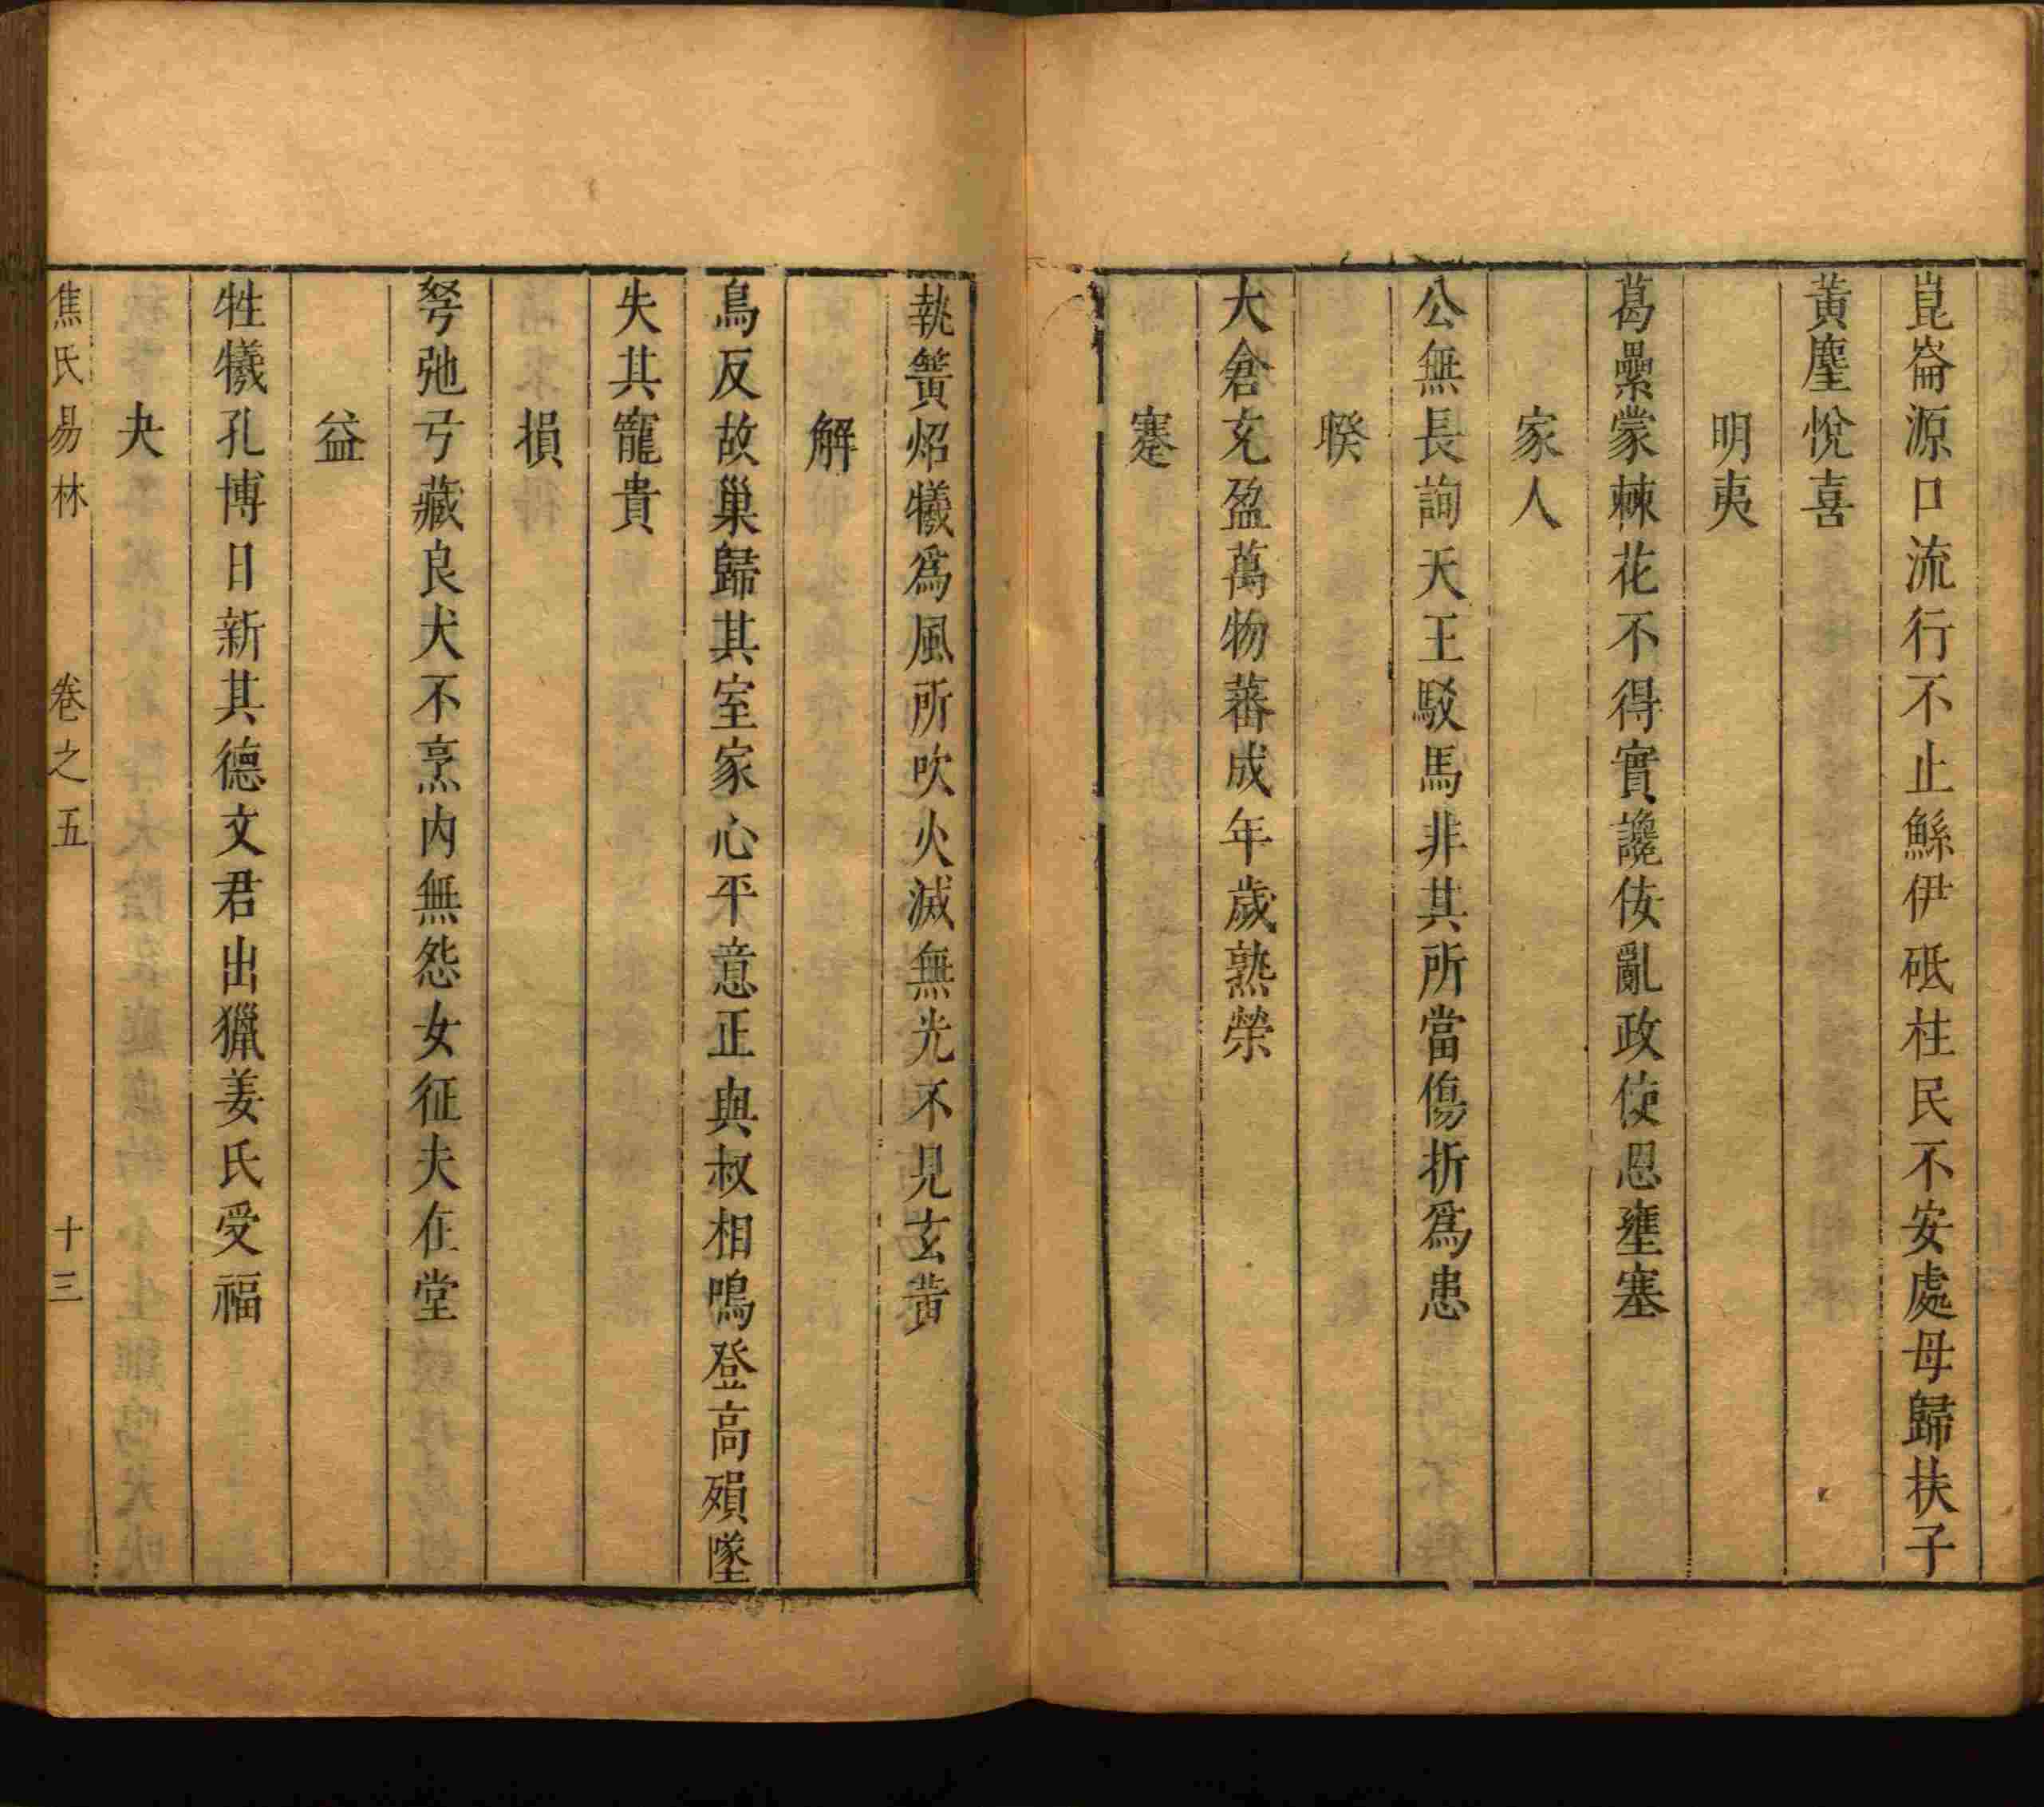 崑崙源口流行不止鯀伊砥柱民不安處母歸扶子
黃麈悅喜
明夷
葛虆蒙棘花不得實讒佞亂政使恩壅塞
家人
公無長詢天王駁馬非其所當傷折爲患
睽
大倉充盈萬物蕃成年歲熟榮
蹇
執簧炤犧爲風所吹火滅無光不見玄黃
解
鳥反故巢歸其室家心平意正與叔相鳴登高殞墜
失其寵貴
損
弩弛弓藏良犬不烹內無怨女征夫在堂
益
牲犧孔博日新其德文君出獵姜氏受福
夬
焦氏易林 卷之五 十三